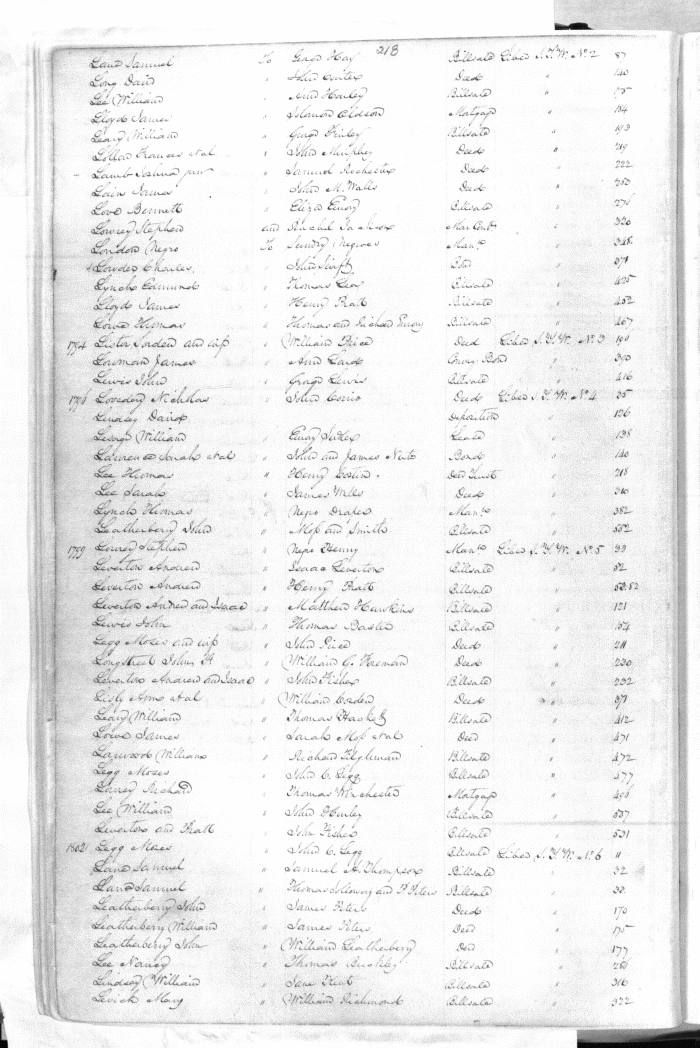 218
Lane Samuel To George Hay Billsale Liber S.T.W. No 2 87
Long David " John Deed " 140
Lee William " Ann Hanley Billsale " 175
Lloyd James " Solomon Clayton Mortgage " 184
Leary William " Billsale " 193
Frances et al " John Murphey Deed " 219
Lamb Joshua junr " Samuel Rochester Deed " 222
Lain James " John M. Walls Deed " 253
Love Bennett " Eliza Emory Billsale " 276
Lowrey Stephen and Rachel Mar. Cont. " 320
London Negro To Sundry Negroes Mann. " 348
Lowder Charles " John Swift Bond " 371
Lynch Edmund " Thomas Lee Billsale " 425
Lloyd James " Henry Pratt Billsale " 452
Lowe Thomas " Thomas and Richard Emory Billsale " 467
1794 Lister Jorden and wife " William Price Deed Liber S.T.W. No 3 196
Lowman James " Ann Bond " 350
Lewis John " George Lewis Billsale " 416
1796 Loveday Nicholas " John Deed Liber S.T.W. No 4 35
Lindsey David Deposition " 126
William " Emory Lease " 138
Lawrence Sarah et al " John and James Bond " 140
Lee Thomas " Henry Costin Deed Trust " 218
Lee Sarah " James Deed " 360
Lynch Thomas " Negro Draper Mann. " 382
Leatherbery John " Moss and Smith Billsale " 552
1799 Lowrey Stephen " Negro Henny Mann. Liber S.T.W. No 5 39
Leverton Andrew " Isaac Leverton Billsale " 52
Leverton Andrew " Henry Pratt Billsale " 52.82
Leverton Andrew and Isaac " Matthew Hawkins Billsale " 121
Lewis John " Thomas Billsale " 154
Legg Moses and wife " John Price Deed " 211
Longstreet John A " William G. Foreman Deed " 230
Leverton Andrew and Isaac " John Fisher Billsale " 232
Ann et al William Corden Deed " 371
Leary William " Thomas Hackett Billsale " 412
Lowe James " Sarah Moss et al Deed " 471
Larwood William " Richard Tilghman Billsale " 472
Legg Moses " John C. Legg Billsale " 477
Richard " Thomas Winchester Mortgage " 496
Lee William " John Hurley Billsale " 537
Leverton and Pratt " John Fisher Billsale " 531
1802 Legg Moses " John C. Legg Billsale Liber S.T.W. No 6 11
Lane Samuel " Samuel A. Thompson Billsale " 32
Lane Samuel " Thomas and P. Peters Billsale " 32
Leatherbery John " James Peters Deed " 170
Leatherbery William " James Peters Deed " 175
Leatherbery John " William Leatherbery Deed " 177
Lee Nancy " Thomas Buckley Billsale "
Lindsey William " Jane Kent Billsale " 316
Levick Mary " William Richmond Billsale " 322